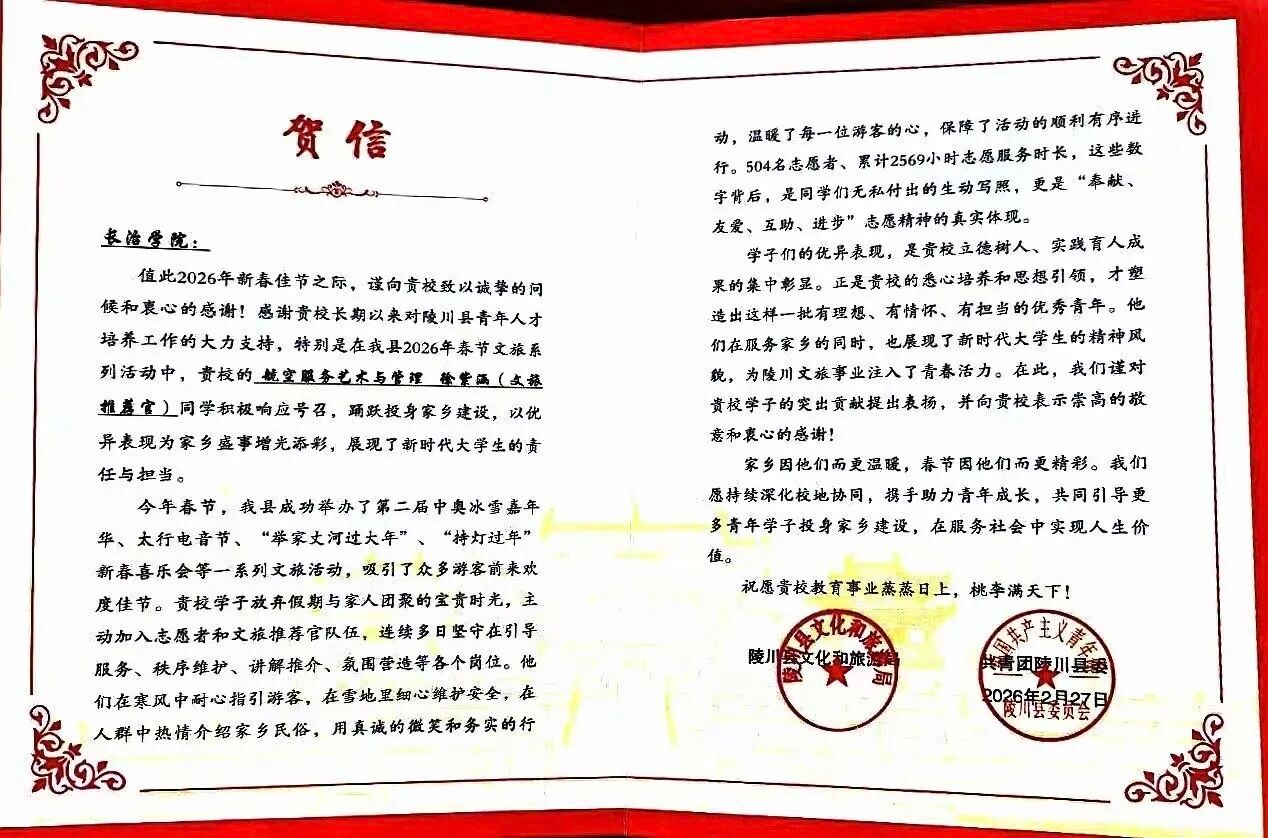 贺信
长治学院：
值此2026年新春佳节之际，谨向贵校致以诚挚的问
候和衷心的感谢！感谢贵校长期以来对陵川县青年人才
培养工作的大力支持，特别是在我县2026年春节文旅系
列活动中，贵校的 航空服务艺术与管理 徐紫涵（文旅
推荐官）同学积极响应号召，踊跃投身家乡建设，以优
异表现为家乡盛事增光添彩，展现了新时代大学生的责
任与担当。
今年春节，我县成功举办了第二届中奥冰雪嘉年
华、太行电音节、“举家丈河过大年”、“持灯过年”
新春喜乐会等一系列文旅活动，吸引了众多游客前来欢
度佳节。贵校学子放弃假期与家人团聚的宝贵时光，主
动加入志愿者和文旅推荐官队伍，连续多日坚守在引导
服务、秩序维护、讲解推介、氛围营造等各个岗位。他
们在寒风中耐心指引游客，在雪地里细心维护安全，在
人群中热情介绍家乡民俗，用真诚的微笑和务实的行
动，温暖了每一位游客的心，保障了活动的顺利有序进
行。504名志愿者、累计2569小时志愿服务时长，这些数
字背后，是同学们无私付出的生动写照，更是“奉献、
友爱、互助、进步”志愿精神的真实体现。
学子们的优异表现，是贵校立德树人、实践育人成
果的集中彰显。正是贵校的悉心培养和思想引领，才塑
造出这样一批有理想、有情怀、有担当的优秀青年。他
们在服务家乡的同时，也展现了新时代大学生的精神风
貌，为陵川文旅事业注入了青春活力。在此，我们谨对
贵校学子的突出贡献提出表扬，并向贵校表示崇高的敬
意和衷心的感谢！
家乡因他们而更温暖，春节因他们而更精彩。我们
愿持续深化校地协同，携手助力青年成长，共同引导更
多青年学子投身家乡建设，在服务社会中实现人生价
值。
祝愿贵校教育事业蒸蒸日上，桃李满天下！
陵川县文化和旅游局
陵川县文化和旅游局
共青团陵川县委
2026年2月27日
国共产主义青年团
陵川县委员会